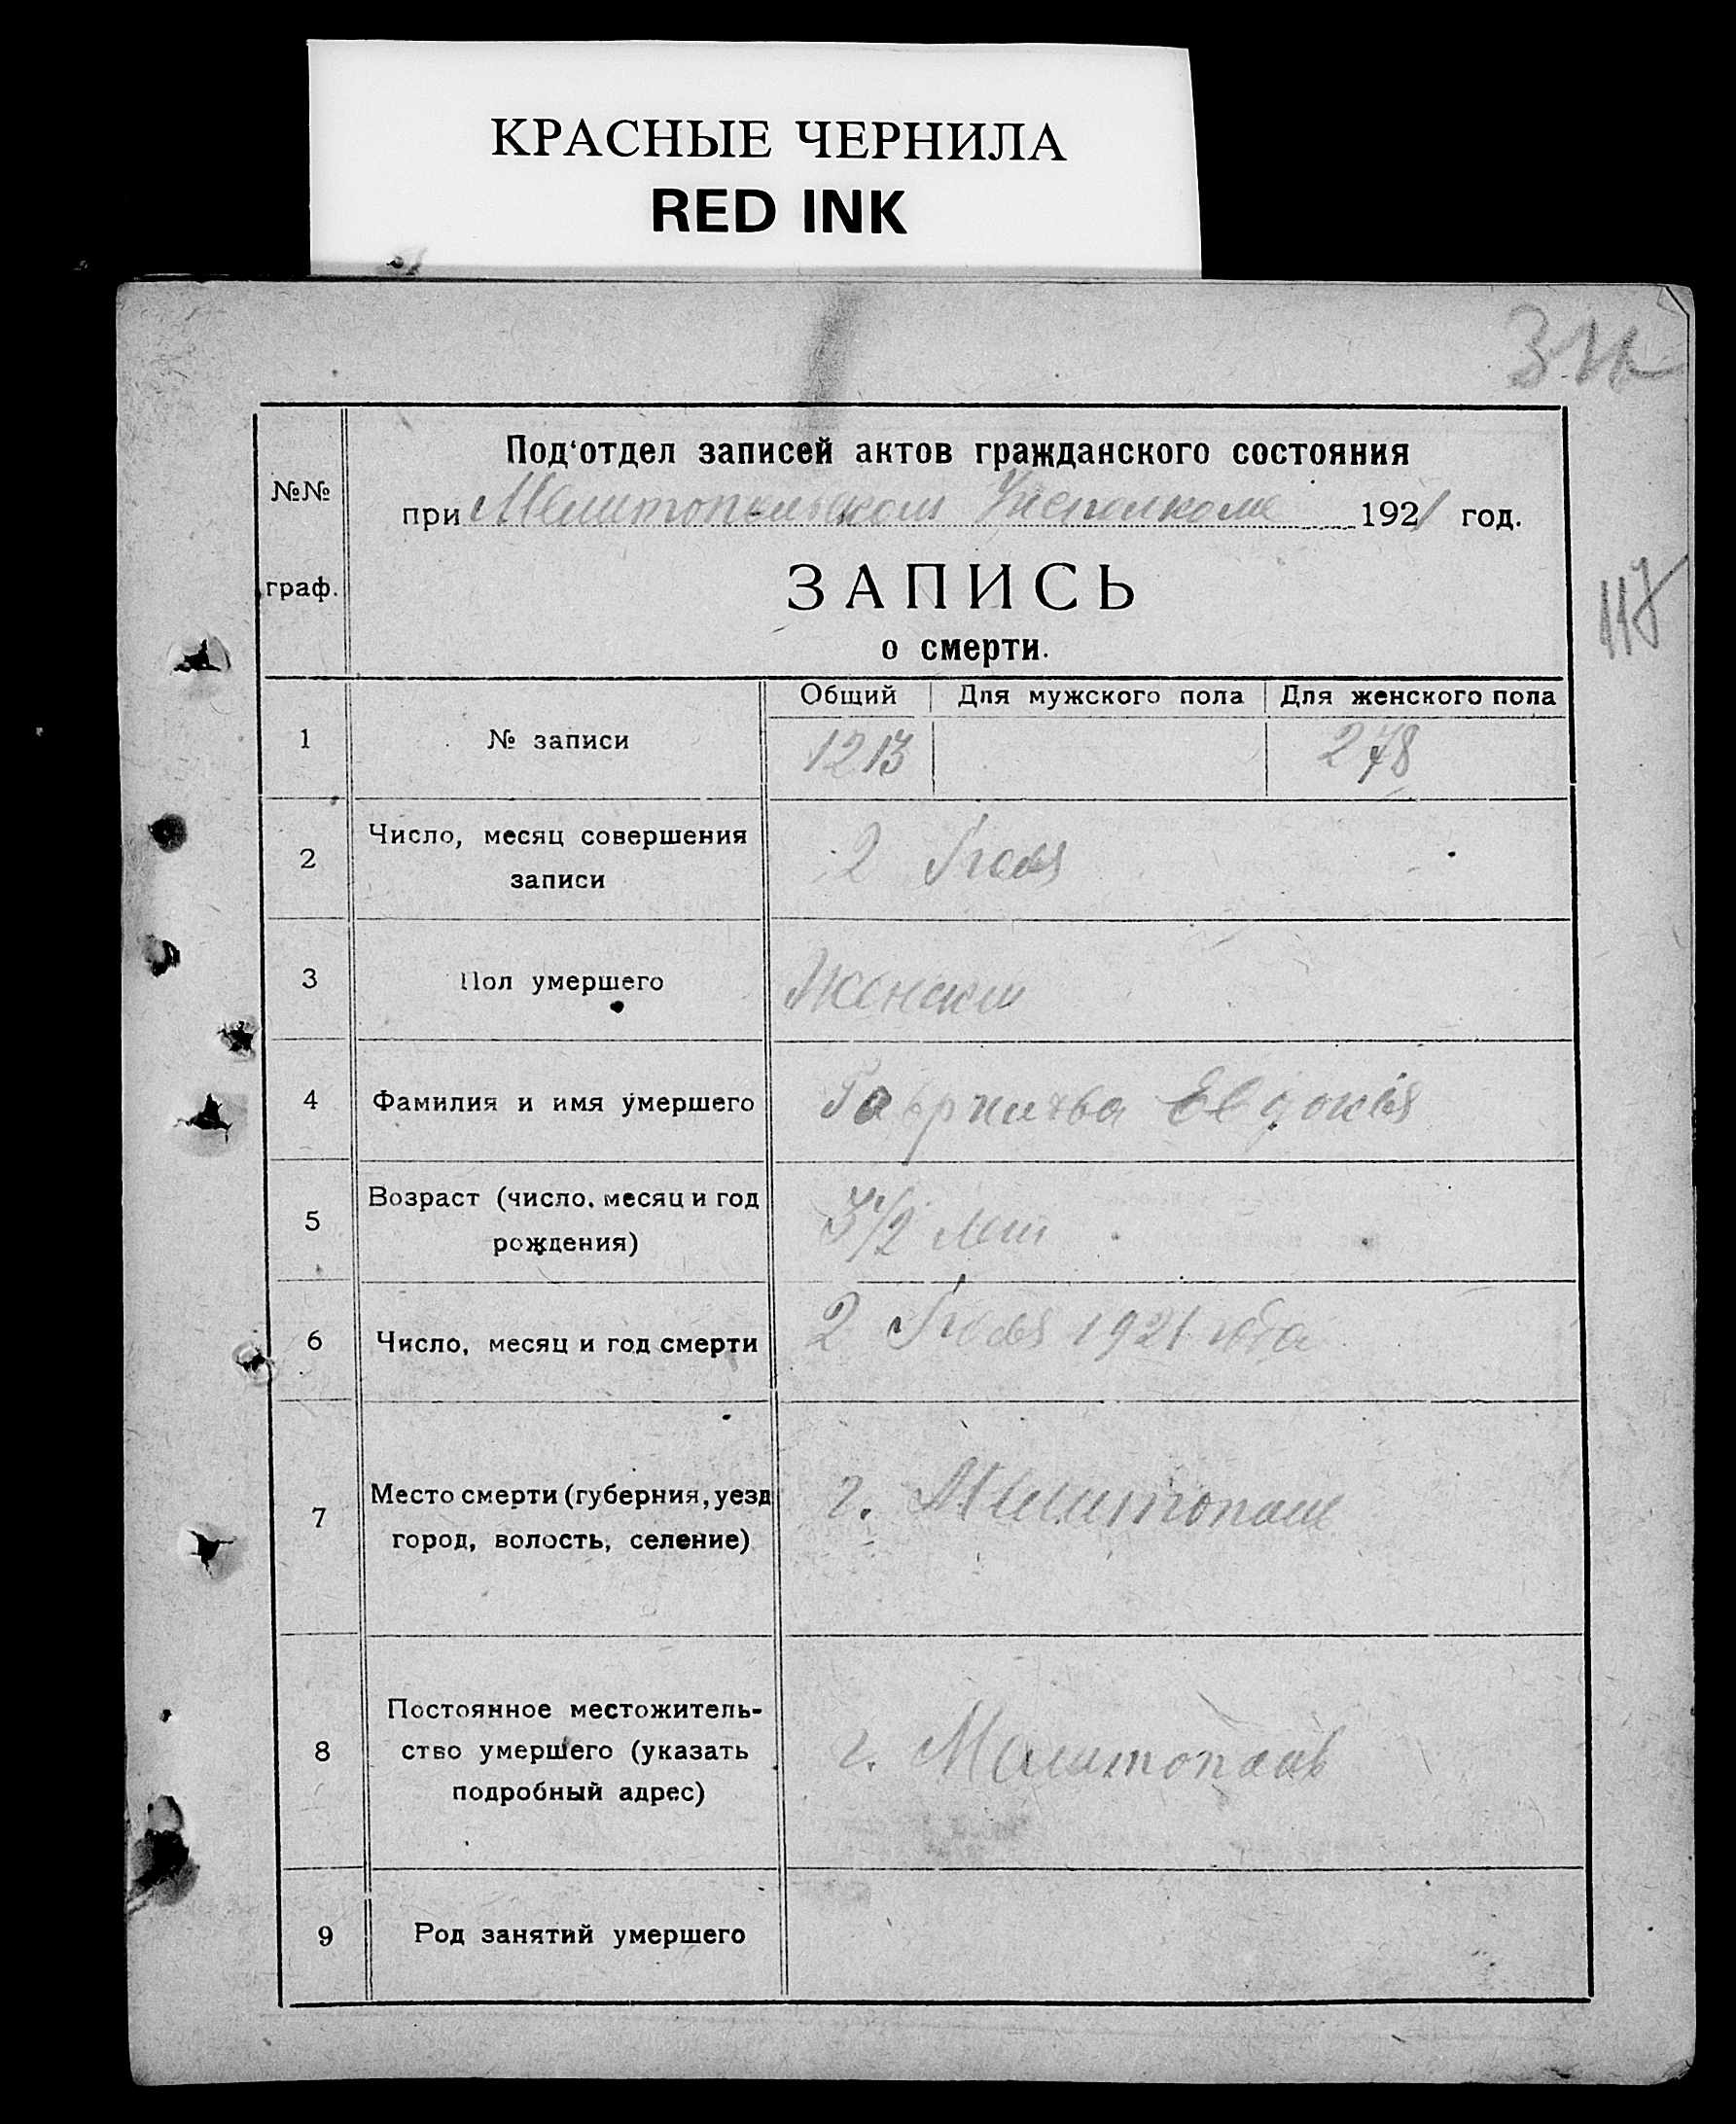 КРАСНЫЕ ЧЕРНИЛА
RED INK
Под'отдел записей актов гражданского состояния
№№
при Мелитопольском Уисполкоме 1921 год.
граф.
ЗАПИСЬ
117
о смерти.
Общий Для мужского пола Для женского пола
1 № записи 1213 278
2 Число, месяц совершения
записи
2 Июля
3 Пол умершего Женский
4 Фамилия и имя умершего Евдокия
5 Возраст (число, месяц и год
рождения)
3 1/2 лет
6 Число, месяц и год смерти 2 Июля 1921 года
7 Место смерти (губерния, уезд
город, волость, селение)
г. Мелитополе
8 Постоянное местожитель-
ство умершего (указать
подробный адрес)
г. Мелитополь
9 Род занятий умершего